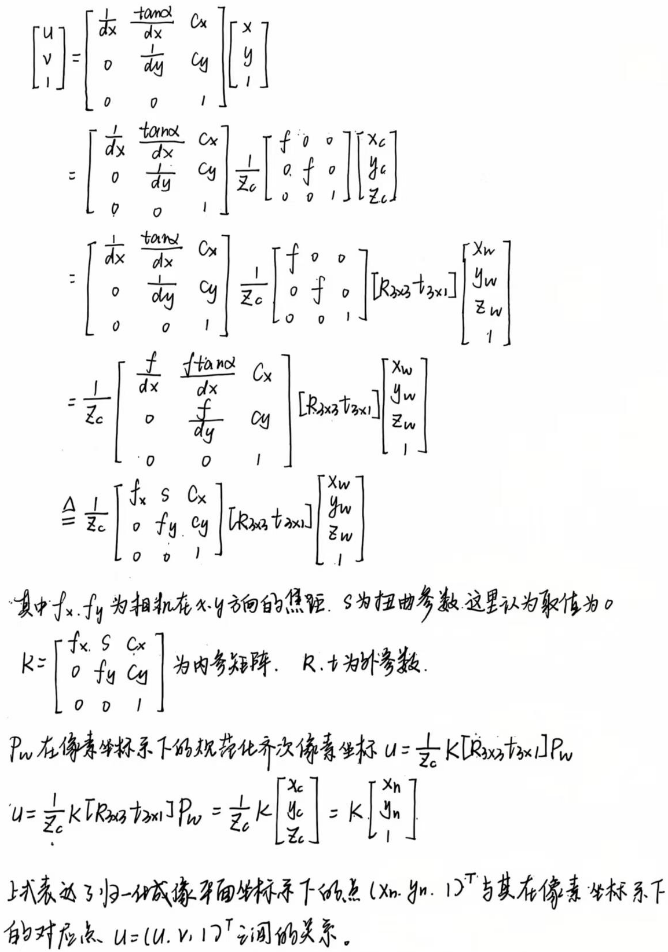 $\begin{bmatrix} u \\ v \\ 1 \end{bmatrix} = \begin{bmatrix} \frac{1}{dx} & \frac{\tan\alpha}{dx} & C_x \\ 0 & \frac{1}{dy} & C_y \\ 0 & 0 & 1 \end{bmatrix} \begin{bmatrix} x \\ y \\ 1 \end{bmatrix}$
$= \begin{bmatrix} \frac{1}{dx} & \frac{\tan\alpha}{dx} & C_x \\ 0 & \frac{1}{dy} & C_y \\ 0 & 0 & 1 \end{bmatrix} \frac{1}{Z_c} \begin{bmatrix} f & 0 & 0 \\ 0 & f & 0 \\ 0 & 0 & 1 \end{bmatrix} \begin{bmatrix} x_c \\ y_c \\ z_c \end{bmatrix}$
$= \begin{bmatrix} \frac{1}{dx} & \frac{\tan\alpha}{dx} & C_x \\ 0 & \frac{1}{dy} & C_y \\ 0 & 0 & 1 \end{bmatrix} \frac{1}{Z_c} \begin{bmatrix} f & 0 & 0 \\ 0 & f & 0 \\ 0 & 0 & 1 \end{bmatrix} [R_{3×3} t_{3×1}] \begin{bmatrix} x_w \\ y_w \\ z_w \\ 1 \end{bmatrix}$
$= \frac{1}{Z_c} \begin{bmatrix} \frac{f}{dx} & \frac{f\tan\alpha}{dx} & C_x \\ 0 & \frac{f}{dy} & C_y \\ 0 & 0 & 1 \end{bmatrix} [R_{3×3} t_{3×1}] \begin{bmatrix} x_w \\ y_w \\ z_w \\ 1 \end{bmatrix}$
$\triangleq \frac{1}{Z_c} \begin{bmatrix} f_x & s & C_x \\ 0 & f_y & C_y \\ 0 & 0 & 1 \end{bmatrix} [R_{3×3} t_{3×1}] \begin{bmatrix} x_w \\ y_w \\ z_w \\ 1 \end{bmatrix}$
其中 fx. fy 为相机在 x. y 方向的焦距. S为扭曲参数. 这里认为取值为0
$K = \begin{bmatrix} f_x & S & C_x \\ 0 & f_y & C_y \\ 0 & 0 & 1 \end{bmatrix}$ 为内参矩阵. R. t 为外参数.
$P_w$ 在像素坐标系下的规范化齐次像素坐标 $u = \frac{1}{Z_c} K [R_{3×3} t_{3×1}] P_w$
$u = \frac{1}{Z_c} K [R_{3×3} t_{3×1}] P_w = \frac{1}{Z_c} K \begin{bmatrix} x_c \\ y_c \\ z_c \end{bmatrix} = K \begin{bmatrix} x_n \\ y_n \\ 1 \end{bmatrix}$
上式表达了归一化成像平面坐标系下的点 $(x_n. y_n. 1)^T$ 与其在像素坐标系下
的对应点 $u = (u. v. 1)^T$ 之间的关系。